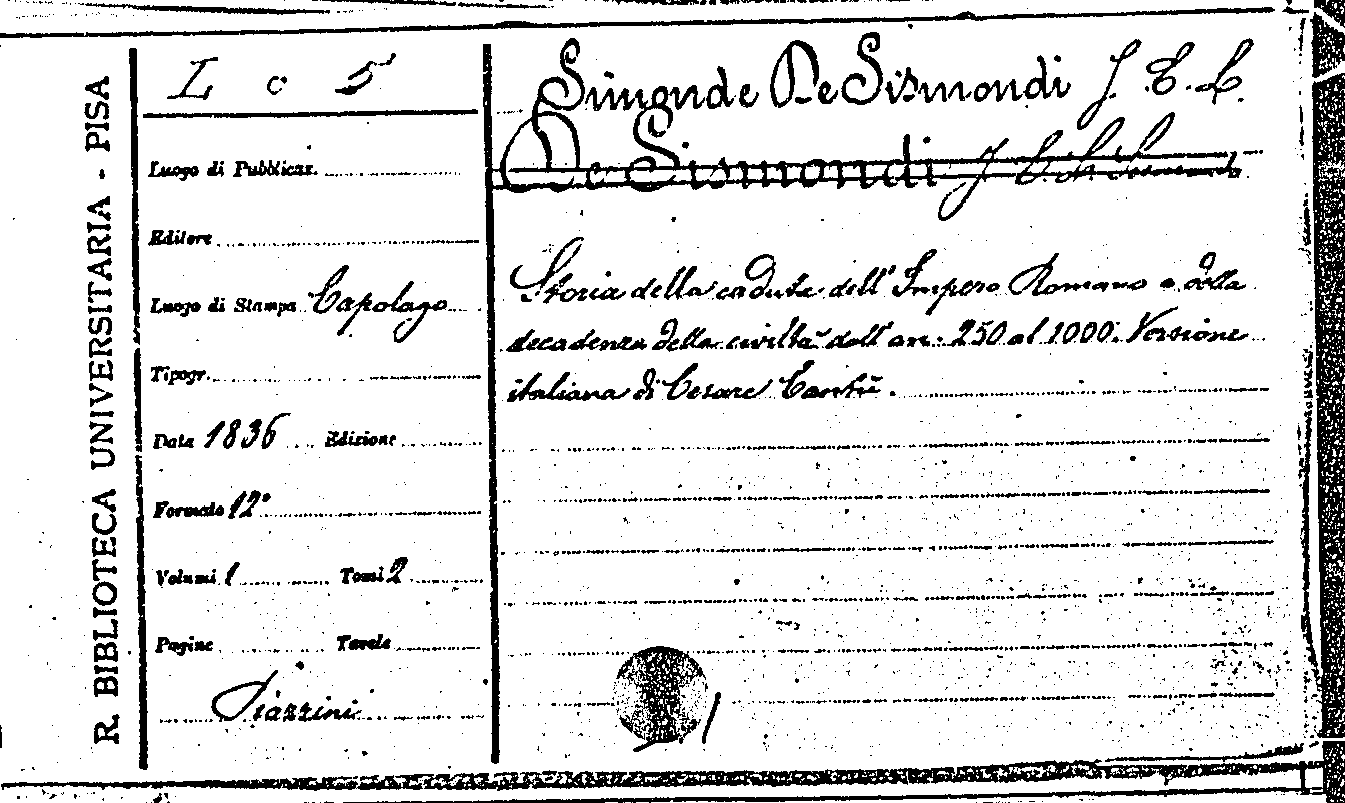 R. BIBLIOTECA UNIVERSITARIA - PISA
L c 5
Luogo di Pubblicaz.
Editore
Luogo di Stampa Capolago
Tipogr.
Data 1836 Edizione
Formato 12°
Volumi 1 Tomi 2
Pagine Tavole
Piazzini
Simonde De Sismondi J. C. L.
De Sismondi J.
Storia della caduta dell'Impero Romano e della
decadenza della civiltà dall'an. 250 al 1000. Versione
italiana di Cesare Cantù.